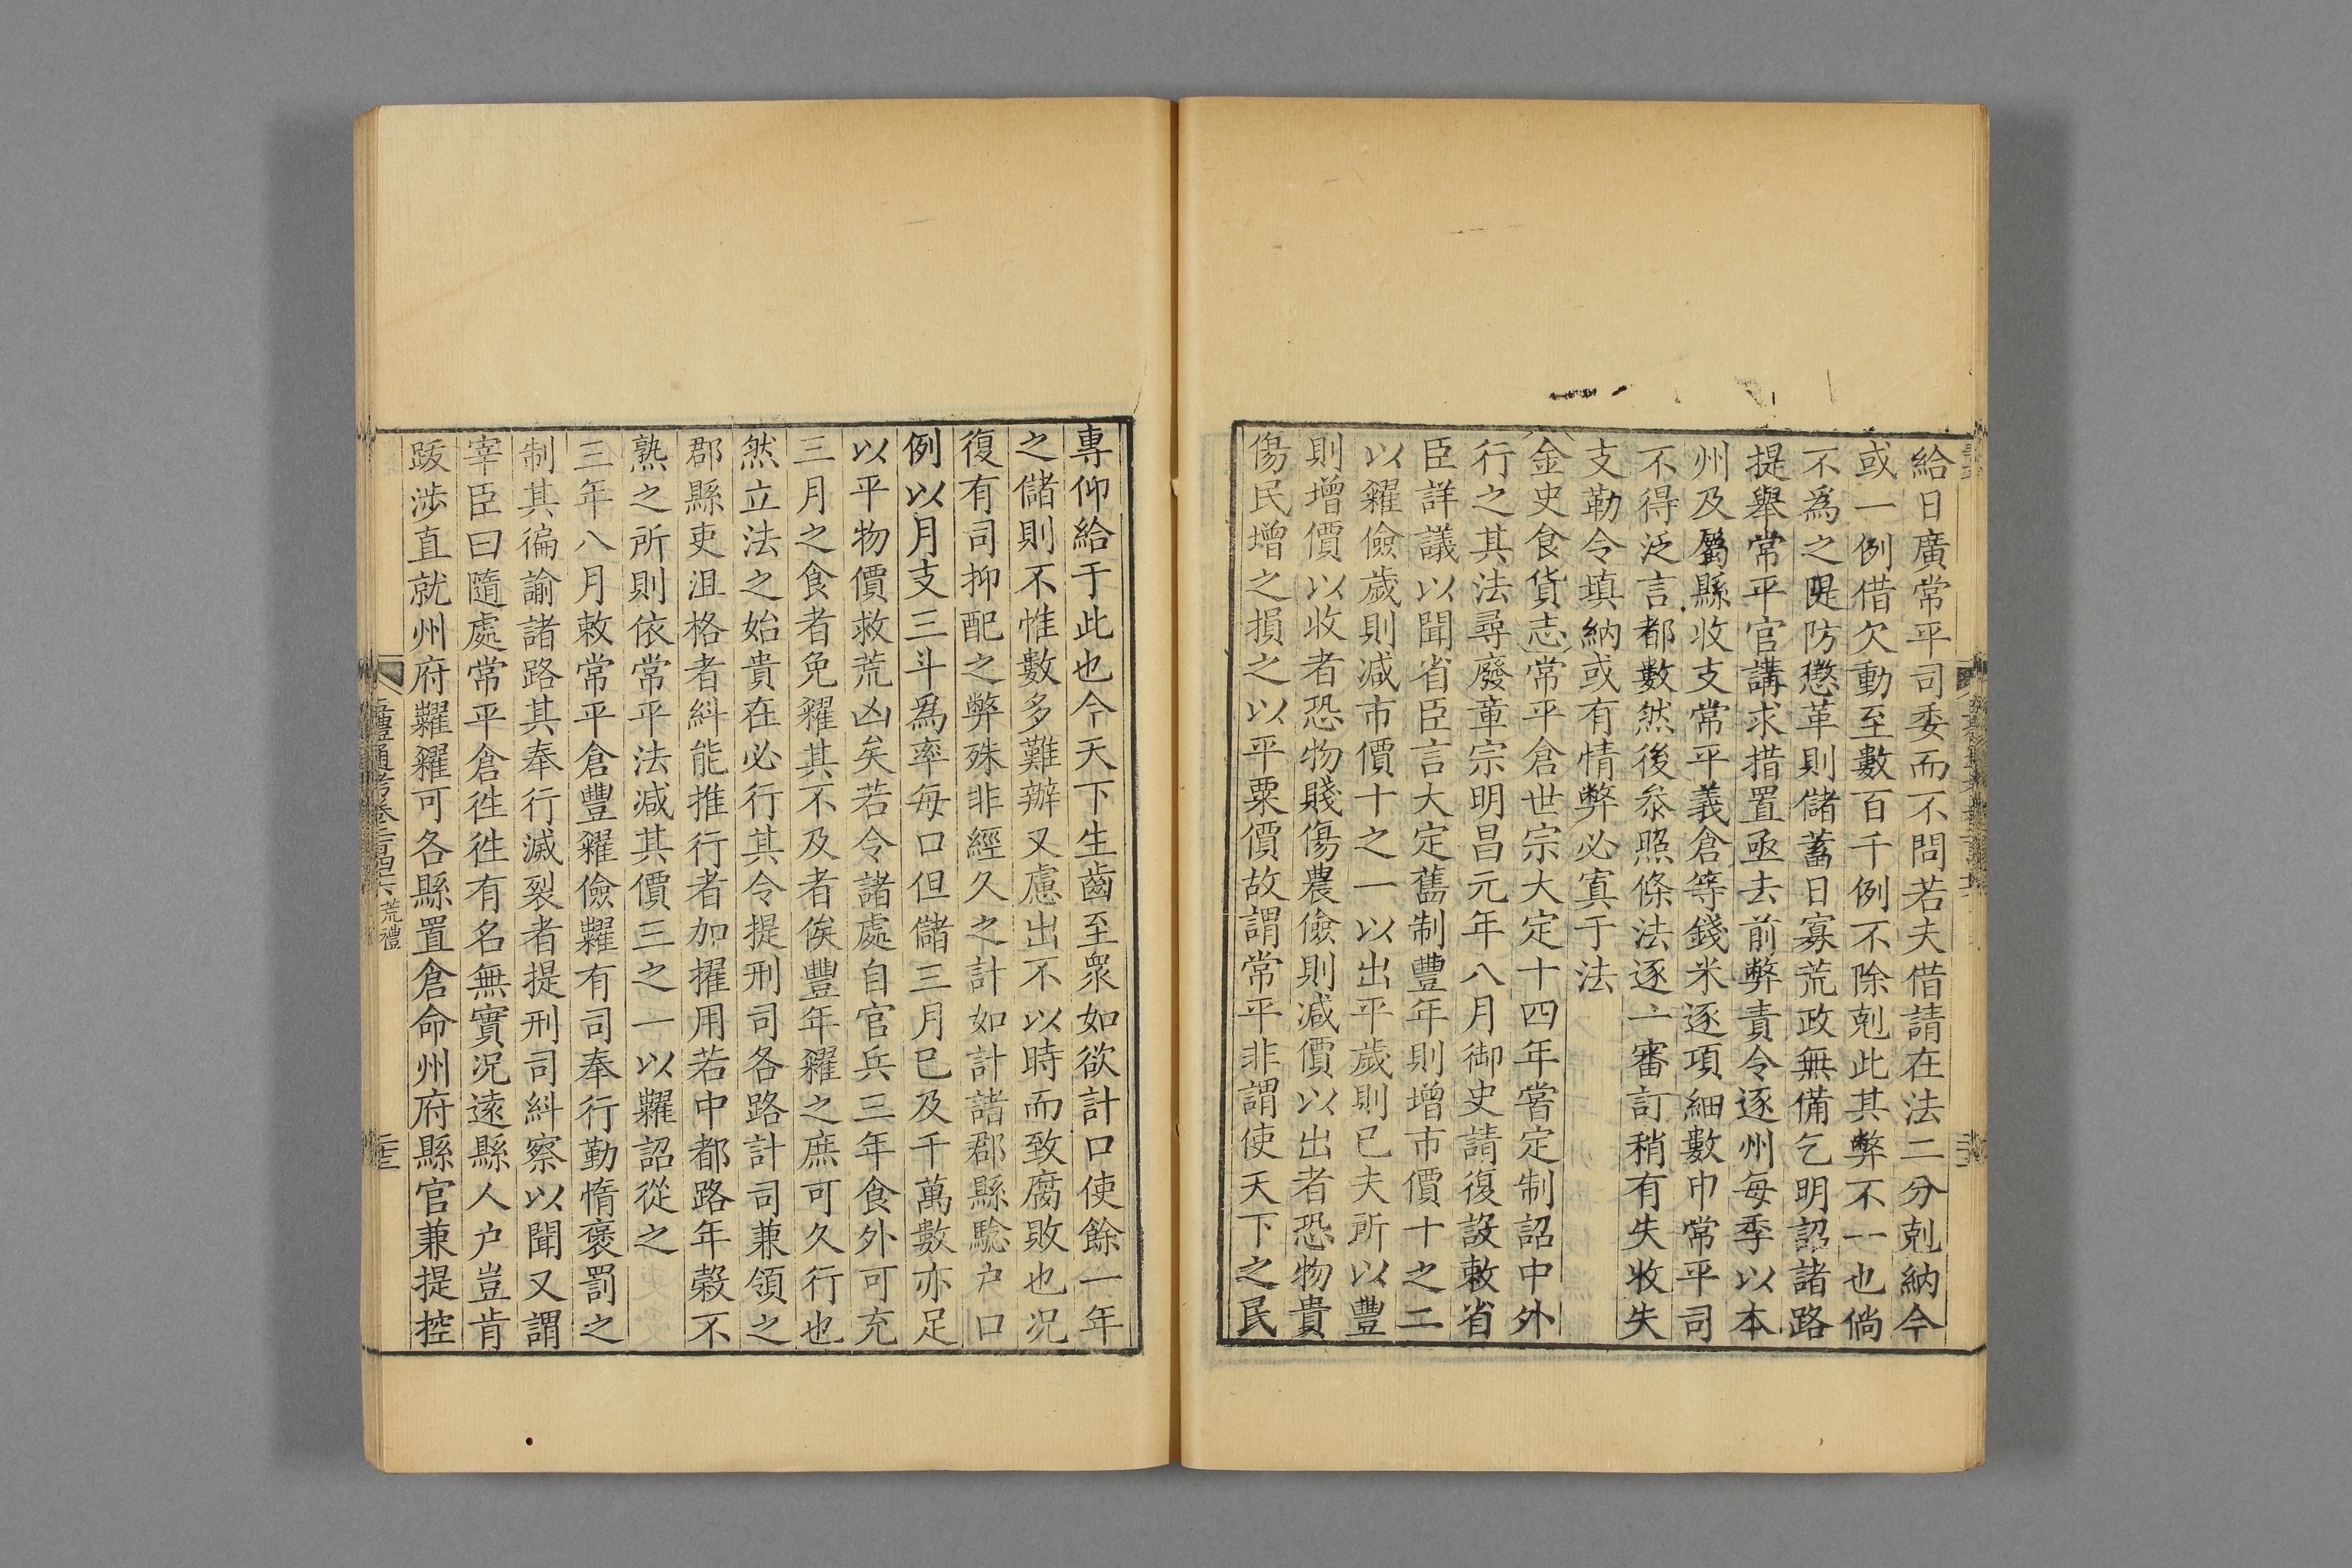 給日廣常平司委而不問若夫借請在法二分剋納今
或一例借欠動至數百千例不除剋此其弊不一也倘
不爲之隄防懲革則儲蓄日寡荒政無備乞明詔諸路
提舉常平官講求措置亟去前弊責令逐州每季以本
州及屬縣收支常平義倉等錢米逐項細數巾常平司
不得泛言都數然後叅照條法逐一審訂稍有失收失
支勒令填納或有情弊必寘于法
金史食貨志常平倉世宗大定十四年嘗定制詔中外
行之其法尋廢章宗明昌元年八月御史請復設敕省
臣詳議以聞省臣言大定舊制豐年則增市價十之二
以糴儉歲則減市價十之一以出平歲則已夫所以豐
則增價以收者恐物賤傷農儉則減價以出者恐物貴
傷民增之損之以平粟價故謂常平非謂使天下之民
專仰給于此也今天下生齒至衆如欲計口使餘一年
之儲則不惟數多難辦又慮出不以時而致腐敗也况
復有司抑配之弊殊非經久之計如計諸郡縣驗户口
例以月支三斗爲率每口但儲三月已及千萬數亦足
以平物價救荒凶矣若令諸處自官兵三年食外可充
三月之食者免糴其不及者俟豐年糴之庶可久行也
然立法之始貴在必行其令提刑司各路計司兼領之
郡縣吏沮格者糾能推行者加擢用若中都路年穀不
熟之所則依常平法減其價三之一以糶詔從之
三年八月敕常平倉豐糴儉糶有司奉行勤惰褒罰之
制其徧諭諸路其奉行滅裂者提刑司糾察以聞又謂
宰臣曰隨處常平倉徃徃有名無實况遠縣人户豈肯
跋涉直就州府糶糴可各縣置倉命州府縣官兼提控
五禮通考卷二百四十六 荒禮